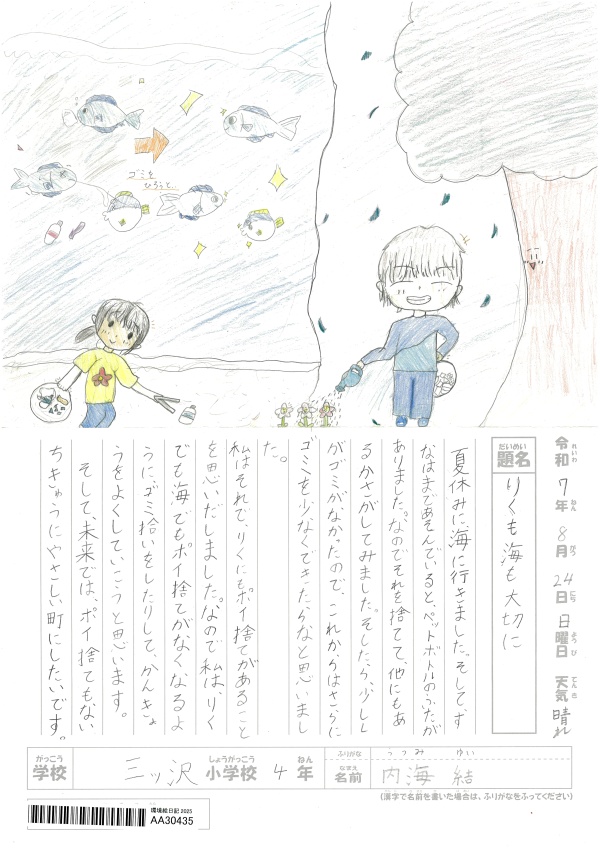 ゴミを
ひろうと…
令和7年8月24日日曜日 天気 晴れ
れいわ ねん がつ にち ようび てんき
だいめい
題名
りくも海も大切に
夏休みに海に行きました。そして、す
なはまであそんでいると、ペットボトルのふたが
ありました。なのでそれを捨てて、他にもあ
るかさがしてみました。そしたら、少しし
かゴミがなかったので、これからはさらに
ゴミを少なくできたらなと思いまし
た。
私はそれで、りくにもポイ捨てがあること
を思いだしました。なので私は、りく
でも海でもポイ捨てがなくなるよ
うにゴミ拾いをしたりして、かんきょ
うをよくしていこうと思います。
そして、未来では、ポイ捨てもない
ちきゅうにやさしい町にしたいです。
がっこう しょうがっこう ねん
学校 三ッ沢 小学校 4年
ふりがな うつみ ゆい
なまえ
名前 内海 結
(漢字で名前を書いた場合は、ふりがなをふってください)
環境絵日記 2025
AA30435